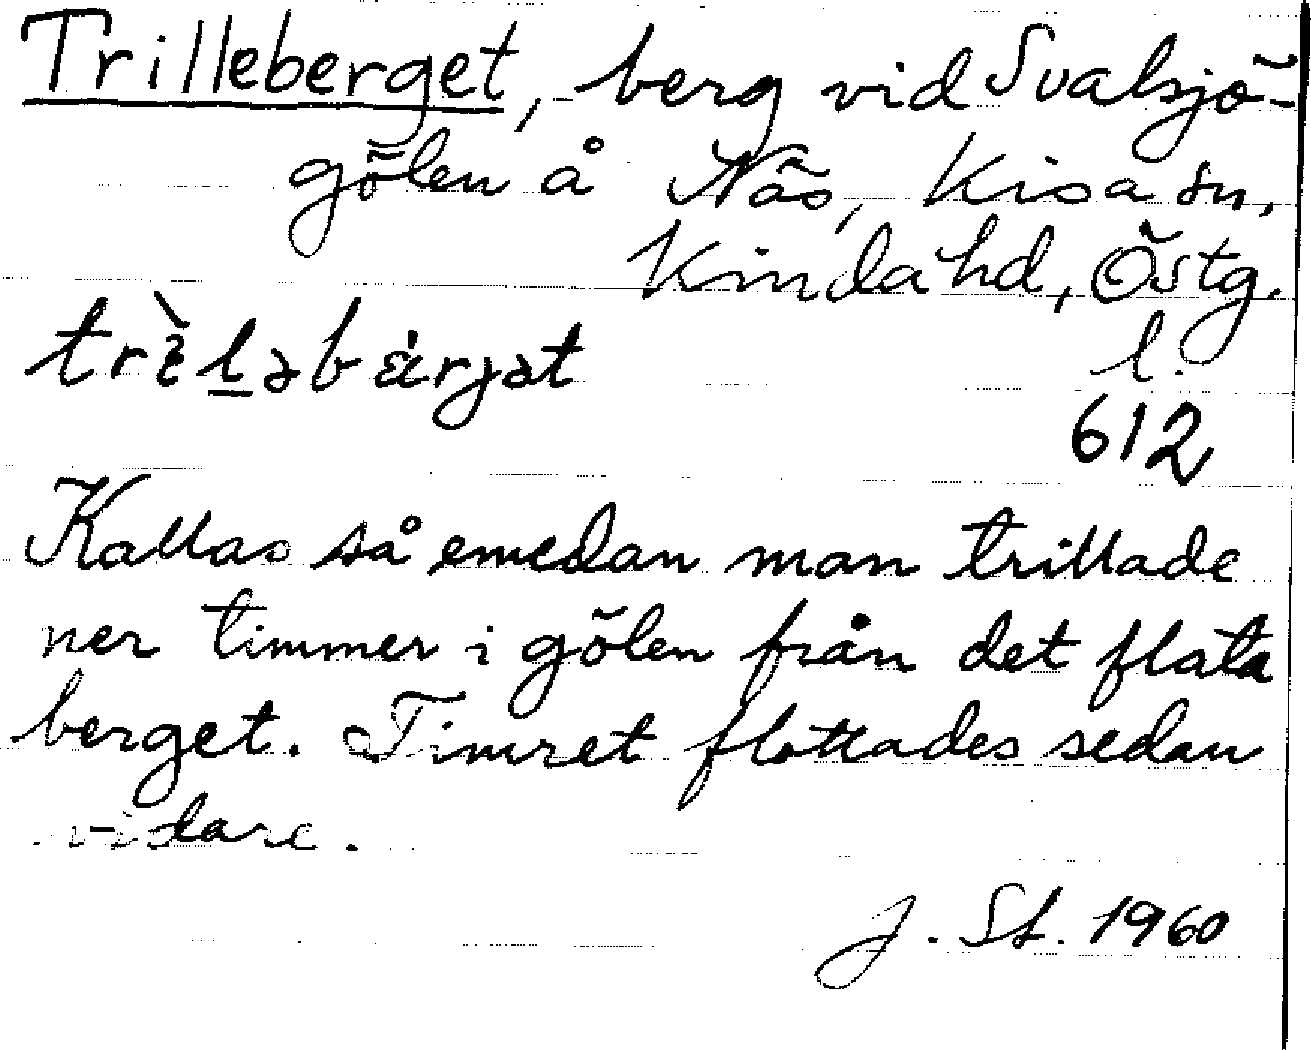 Trilleberget, berg vid Svalsjö-
gölen å Näs, Kisa sn,
Kinda hd, Östg.
l.
612
Kallas så emedan man trillade
ner timmer i gölen från det flata
berget. Timret flottades sedan
vidare.
J. St. 1960